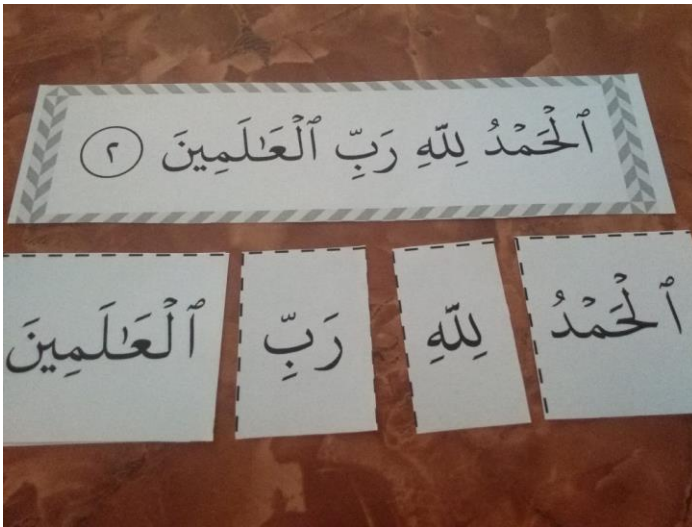 ٱلْحَمْدُ لِلَّهِ رَبِّ ٱلْعَـٰلَمِينَ ٢
ٱلْحَمْدُ لِلَّهِ رَبِّ ٱلْعَـٰلَمِينَ